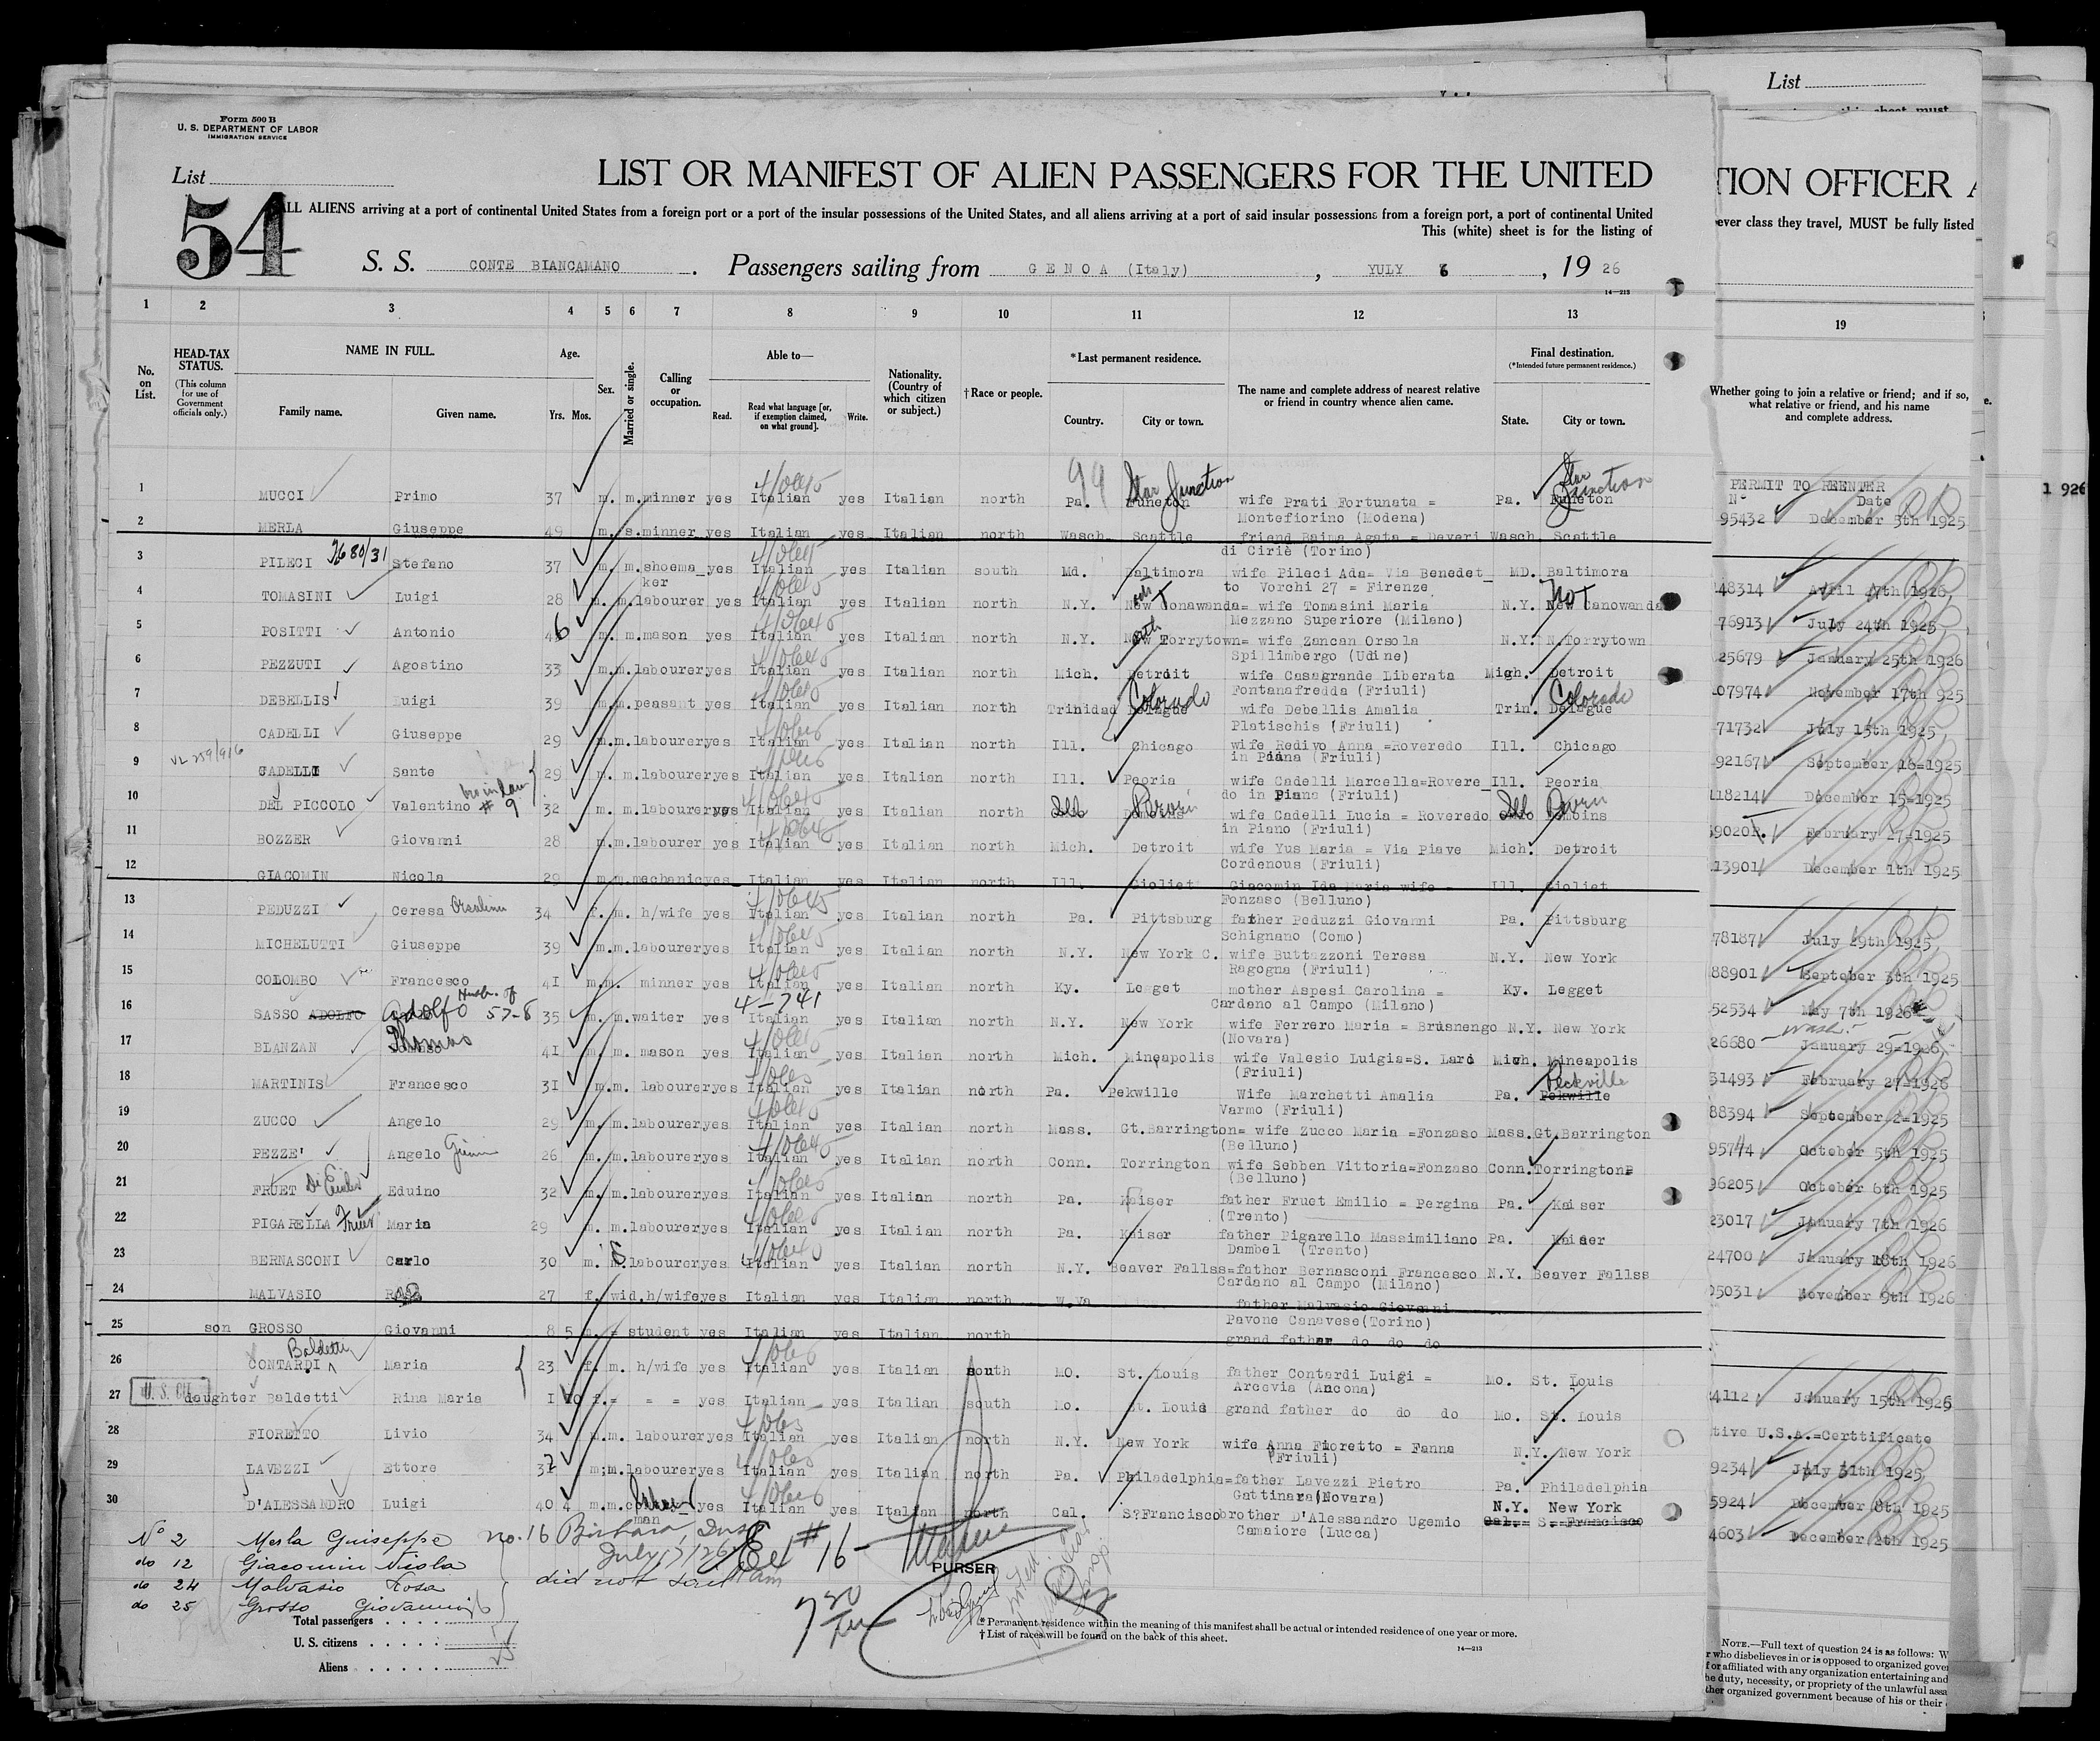 Form 500 B
U. S. DEPARTMENT OF LABOR
IMMIGRATION SERVICE
List
List
54
LIST OR MANIFEST OF ALIEN PASSENGERS FOR THE UNITED
TION OFFICER A
ALL ALIENS arriving at a port of continental United States from a foreign port or a port of the insular possessions of the United States, and all aliens arriving at a port of said insular possessions from a foreign port, a port of continental United
ever class they travel, MUST be fully listed
This (white) sheet is for the listing of
S. S. CONTE BIANCAMANO. Passengers sailing from GENOA (Italy), YULY 6, 1926
14-213
1 2 3 4 5 6 7 8 9 10 11 12 13 19
No. on List.
HEAD-TAX STATUS.
(This column for use of Government officials only.)
NAME IN FULL.
Family name. Given name.
Age. Yrs. Mos.
Sex.
Married or single.
Calling or occupation.
Able to—
Read. Read what language [or, if exemption claimed, on what ground]. Write.
Nationality. (Country of which citizen or subject.)
†Race or people.
*Last permanent residence.
Country. City or town.
The name and complete address of nearest relative or friend in country whence alien came.
Final destination.
(*Intended future permanent residence.)
State. City or town.
Whether going to join a relative or friend; and if so, what relative or friend, and his name and complete address.
PERMIT TO REENTER
N° Date
1 926
99 Star Junction Star Junction
1 MUCCI Primo 37 m. m. minner yes Italian yes Italian north Pa. wife Prati Fortunata = Pa. 95432 December 3th 1925
Montefiorino (Modena)
2 MERLA Giuseppe 49 m. s. minner yes Italian yes Italian north Wasch. Scattle friend Baima Agata = Deveri Wasch. Scattle
di Ciriè (Torino)
3 PILECI 2680/31 Stefano 37 m. m. shoema_ker yes Italian yes Italian south Md. Baltimora wife Pileci Ada= Via Benedet_ MD. Baltimora 48314 Avril 17th 1926,
to Vorchi 27 = Firenze
4 TOMASINI Luigi 28 m. m. labourer yes Italian yes Italian north N.Y. Tonawanda= wife Tomasini Maria N.Y. New Canowanda 76913 July 24th 1925
Mezzano Superiore (Milano)
5 POSITTI Antonio 46 m. m. mason yes Italian yes Italian north N.Y. Torrytown= wife Zancan Orsola N.Y. N.Torrytown 25679 January 25th 1926
Spillimbergo (Udine)
6 PEZZUTI Agostino 33 m. m. labourer yes Italian yes Italian north Mich. Detroit wife Casagrande Liberata Mich. Detroit 07974 November 17th 925
Fontanafredda (Friuli)
7 DEBELLIS Luigi 39 m. m. peasant yes Italian yes Italian north Trinidad Delague Colorado wife Debellis Amalia Trin. Delague Colorado 71732 July 15th 1925,
Platischis (Friuli)
8 CADELLI Giuseppe 29 m. m. labourer yes Italian yes Italian north Ill. Chicago wife Redivo Anna =Roveredo Ill. Chicago 92167 September 16=1925
in Piana (Friuli)
9 CADELLI Sante 29 m. m. labourer yes Italian yes Italian north Ill. Peoria wife Cadelli Marcella=Rovere_ Ill. Peoria 118214 December 15=1925
do in Piano (Friuli)
bro in law # 9
10 DEL PICCOLO Valentino 32 m. m. labourer yes Italian yes Italian north wife Cadelli Lucia = Roveredo February 17=1925
in Piano (Friuli)
11 BOZZER Giovanni 28 m. m. labourer yes Italian yes Italian north Mich. Detroit wife Yus Maria = Via Piave Mich. Detroit 13901 December 1th 1925
Cordenous (Friuli)
12 GIACOMIN Nicola 29 m. m. mechanic yes Italian yes Italian north Ill. Gioliet Giacomin Ida Maria wife = Ill. Gioliet
Fonzaso (Belluno)
13 PEDUZZI Ceresa Orsolina 34 f. m. h/wife yes Italian yes Italian north Pa. Pittsburg father Peduzzi Giovanni Pa. Pittsburg 78187 July 29th 1925,
Schignano (Como)
14 MICHELUTTI Giuseppe 39 m. m. labourer yes Italian yes Italian north N.Y. New York C. wife Buttazzoni Teresa N.Y. New York 88901 September 3th 1925
Ragogna (Friuli)
15 COLOMBO Francesco 41 m. m. minner yes Italian yes Italian north Ky. Legget mother Aspesi Carolina = Ky. Legget 52534 May 7th 1926
Cardano al Campo (Milano)
16 SASSO ADOLFO Adolfo Husb. of 57-8 35 m. m. waiter yes 4-741 Italian yes Italian north N.Y. New York wife Ferrero Maria = Brusnengo N.Y. New York 26680 January 29=1926
(Novara)
17 BLANZAN Thomas 41 m. m. mason yes Italian yes Italian north Mich. Mineapolis wife Valesio Luigia=S. Lard Mich. Mineapolis 31493 February 27=1926
(Friuli)
18 MARTINIS Francesco 31 m. m. labourer yes Italian yes Italian north Pa. Pekwille Wife Marchetti Amalia Pa. Pekwille Peckville 88394 September 2=1925
Varmo (Friuli)
19 ZUCCO Angelo 29 m. m. labourer yes Italian yes Italian north Mass. Gt.Barrington= wife Zucco Maria =Fonzaso Mass. Gt.Barrington October 5th 1925
(Belluno)
20 PEZZE' Angelo 26 m. m. labourer yes Italian yes Italian north Conn. Torrington wife Sebben Vittoria=Fonzaso Conn. Torrington 96205 October 6th 1925
(Belluno)
21 FRUET Eduino 32 m. m. labourer yes Italian yes Italian north Pa. Kaiser father Fruet Emilio = Pergina Pa. Kaiser 23017 January 7th 1926
(Trento)
22 PIGARELLA Fruet Maria 29 m. m. labourer yes Italian yes Italian north Pa. Kaiser father Pigarello Massimiliano Pa. Kaiser 24700 January 18th 1926
Dambel (Trento)
23 BERNASCONI Carlo 30 m. S. labourer yes Italian yes Italian north N.Y. Beaver Fallss=father Bernasconi Francesco N.Y. Beaver Fallss 05031 November 9th 1926
Cardano al Campo (Milano)
24 MALVASIO 27 f. wid. h/wife yes Italian yes Italian north W.Va father Malvasio Giovanni
Pavone Canavese(Torino)
25 son GROSSO Giovanni 8 5 m. = student yes Italian yes Italian north grand father do do do
Baldetti
26 CONTARDI Maria 23 f. m. h/wife yes Italian yes Italian south MO. St. Louis father Contardi Luigi = Mo. St. Louis 4112 January 15th 1926
Arcevia (Ancona)
27 U.S. CIT. daughter Baldetti Rina Maria 1 10 f. = = = yes Italian yes Italian south Mo. St. Louis grand father do do do Mo. St. Louis tive U.S.A.=Certtificate
28 FIORETTO Livio 34 m. m. labourer yes Italian yes Italian north N.Y. New York wife Anna Fioretto = Fanna N.Y. New York 9234 July 31th 1925,
(Friuli)
29 LAVEZZI Ettore 37 m. m. labourer yes Italian yes Italian north Pa. Philadelphia=father Lavezzi Pietro Pa. Philadelphia 5924 December 8th 1925
Gattinara(Novara)
30 D'ALESSANDRO Luigi 40 4 m. m. yes Italian yes Italian north Cal. S?Francisco brother D'Alessandro Ugemio N.Y. New York 4603 December 2th 1925
man Camaiore (Lucca) Cal.= S. Francisco
N° 2 Merla Guiseppe
do 12 Giacomin Nicola
do 24 Malvasio Rosa
do 25 Grosso Giovanni
did not sail
no. 16 Barbara, Insp
July 17/26
# 16
730
PURSER
Total passengers
U. S. citizens
Aliens
* Permanent residence within the meaning of this manifest shall be actual or intended residence of one year or more.
† List of races will be found on the back of this sheet.
14-213
NOTE.—Full text of question 24 is as follows: W
r who disbelieves in or is opposed to organized gover
f or affiliated with any organization entertaining and
he duty, necessity, or propriety of the unlawful assa
ther organized government because of his or their